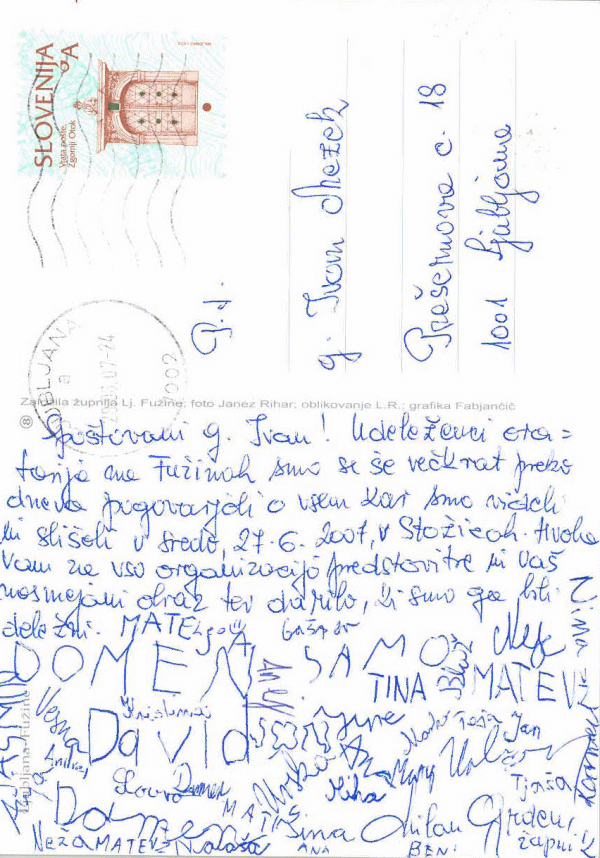 SLOVENIJA
A
Vrata pošte,
Zgornji Otok
LJUBLJANA
a
1002
P.d.
g. Ivan
Prešernova c. 18
1001 Ljubljana
Založila župnija Lj. Fužine; foto Janez Rihar; oblikovanje L.R.; grafika Fabjančič
Spoštovani g. Ivan! Udeleženci ora=
torija na Fužinah smo se še večkrat preko
dneva pogovarjali o vsem kar smo videli
in slišali v sredo, 27.6.2007, v Stožicah. Hvala
vam za vso organizacijo predstavitve in vaš
nasmejani obraz ter darilo, ki smo ga bili
deležni.
MATEJ
GAŠPER
Nina
DOMEN
SAMO
Neje
TINA
Blaž
MATEVŽ
JASMIN
Vesna
Anej
Kristina
David
Jan
Andrej
Lovro
Domen
Urška
Miha
Tjaša
MATIJA
Damen
Neža
MATEVŽ
Nataša
Tina
ANA
Milan
BENI
Ljubljana-Fužine